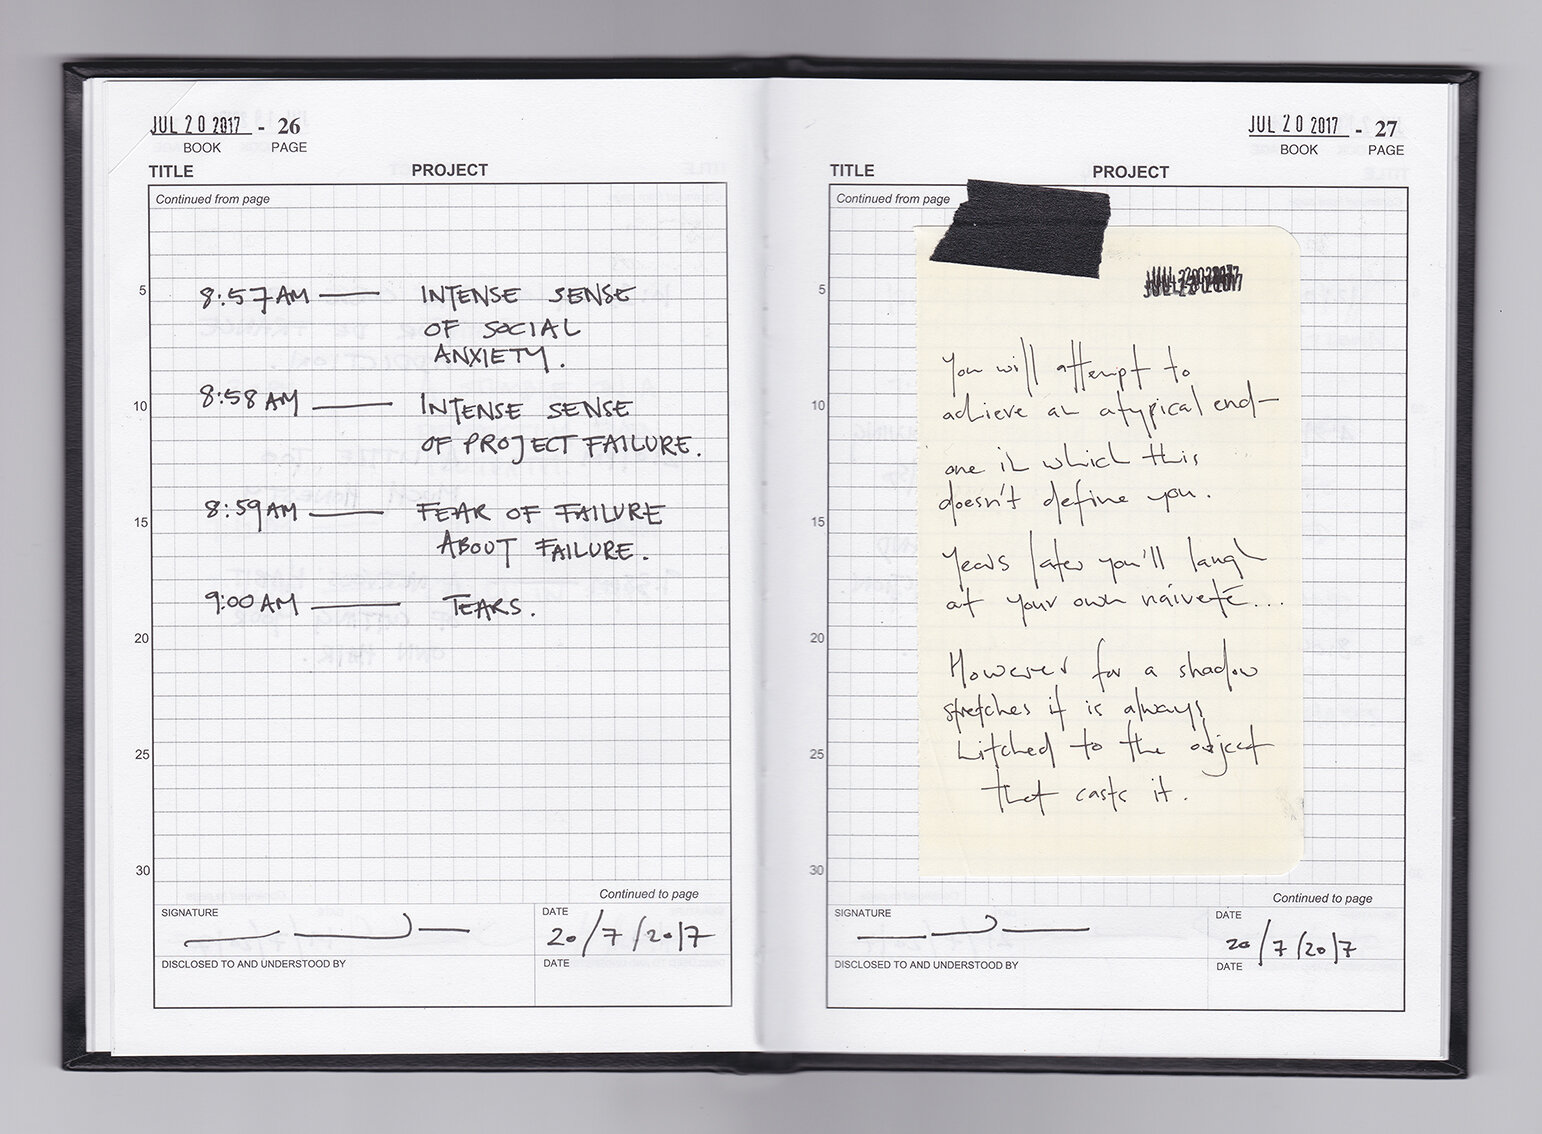 JUL 20 2017 - 26
BOOK PAGE
TITLE PROJECT
Continued from page
8:57AM — INTENSE SENSE
OF SOCIAL
ANXIETY.
8:58AM — INTENSE SENSE
OF PROJECT FAILURE.
8:59AM — FEAR OF FAILURE
ABOUT FAILURE.
9:00AM — TEARS.
5
10
15
20
25
30
Continued to page
SIGNATURE
DATE
20/7/2017
DISCLOSED TO AND UNDERSTOOD BY
DATE
JUL 20 2017 - 27
BOOK PAGE
TITLE PROJECT
Continued from page
You will attempt to
achieve an atypical end—
one in which this
doesn't define you.
Years later you'll laugh
at your own naiveté...
However for a shadow
stretches it is always
hitched to the object
that casts it.
5
10
15
20
25
30
Continued to page
SIGNATURE
DATE
20/7/2017
DISCLOSED TO AND UNDERSTOOD BY
DATE